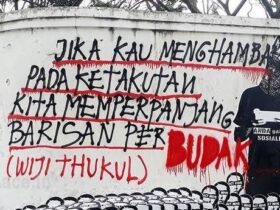 JIKA KAU MENGHAMBA
PADA KETAKUTAN
KITA MEMPERPANJANG
BARISAN PER
BUDAK
(WIJI THUKUL)